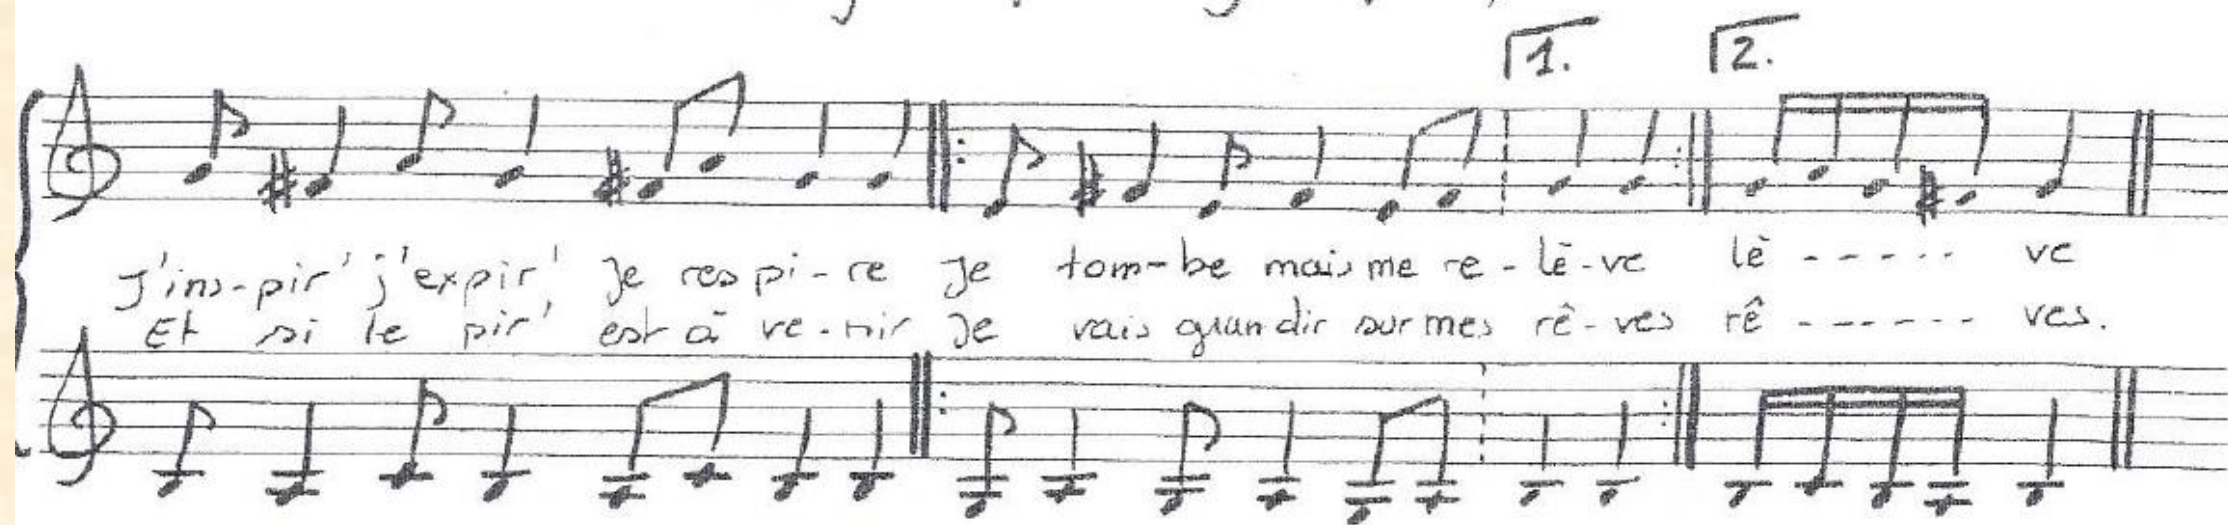 1. 2.
J'ins-pir' j'expir' Je respi-re Je tom-be mais me re-lè-ve lè ------ ve
Et si le pir' est à ve-nir Je vais grandir sur mes rê-ves rê ------ ves.